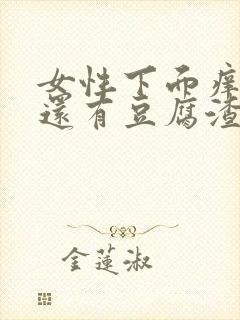 女性下面痒
还有豆腐渣
金莲淑